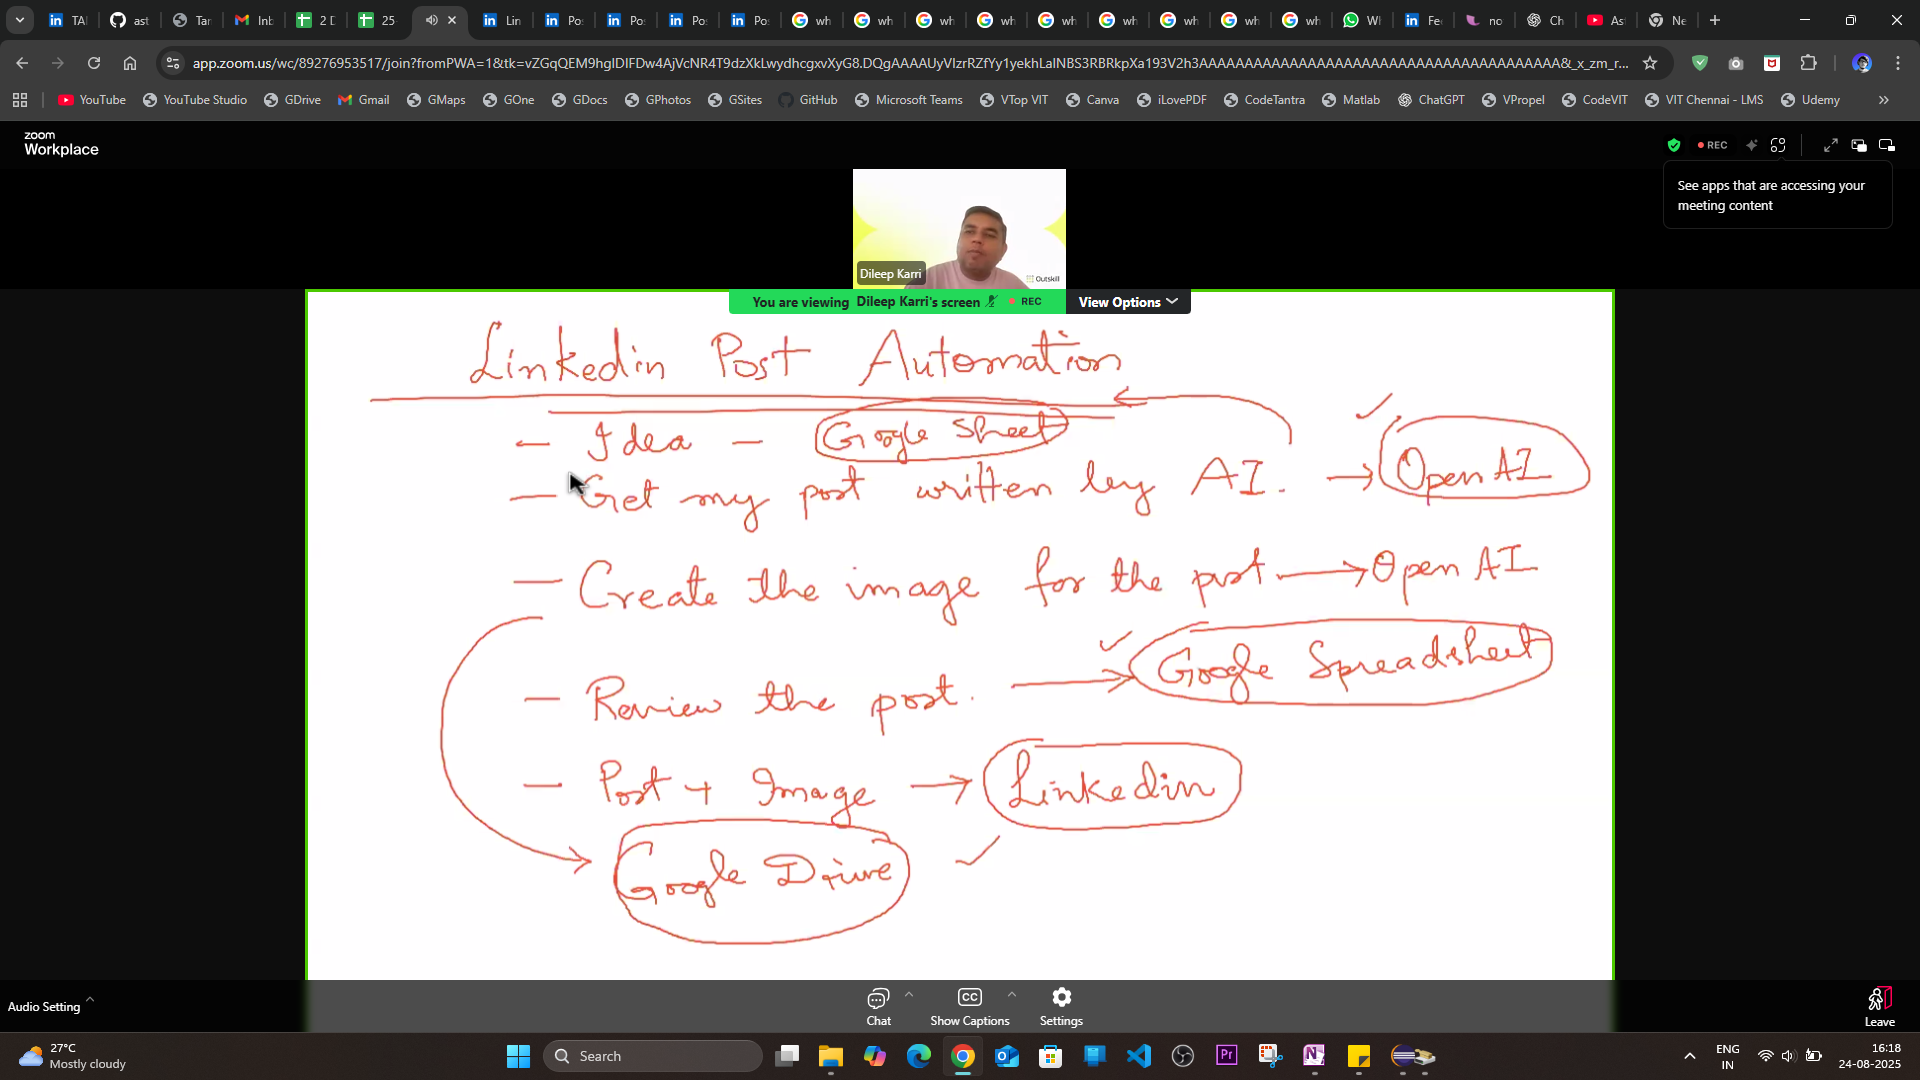 TA
ast
Tar
Inb
2 D
25-
Lin
Po:
Po:
Po:
Po:
wh
wh
wh
wh
wh
wh
wh
wh
wh
Wl
Fe
no
Ch
As
Ne
app.zoom.us/wc/89276953517/join?fromPWA=1&tk=
YouTube YouTube Studio GDrive Gmail GMaps GOne GDocs GPhotos GSites GitHub Microsoft Teams VTop VIT Canva iLovePDF CodeTantra Matlab ChatGPT VPropel CodeVIT VIT Chennai - LMS Udemy »
zoom
Workplace
REC
See apps that are accessing your
meeting content
Dileep Karri
Outskill
You are viewing Dileep Karri's screen REC View Options
Linkedin Post Automation
— Idea — Google Sheet
— Get my post written by AI. → OpenAI
— Create the image for the post → Open AI
— Review the post. → Google Spreadsheet
— Post + Image → Linkedin
Google Drive
Audio Setting
Chat
Show Captions
Settings
Leave
27°C
Mostly cloudy
Search
ENG
IN
16:18
24-08-2025